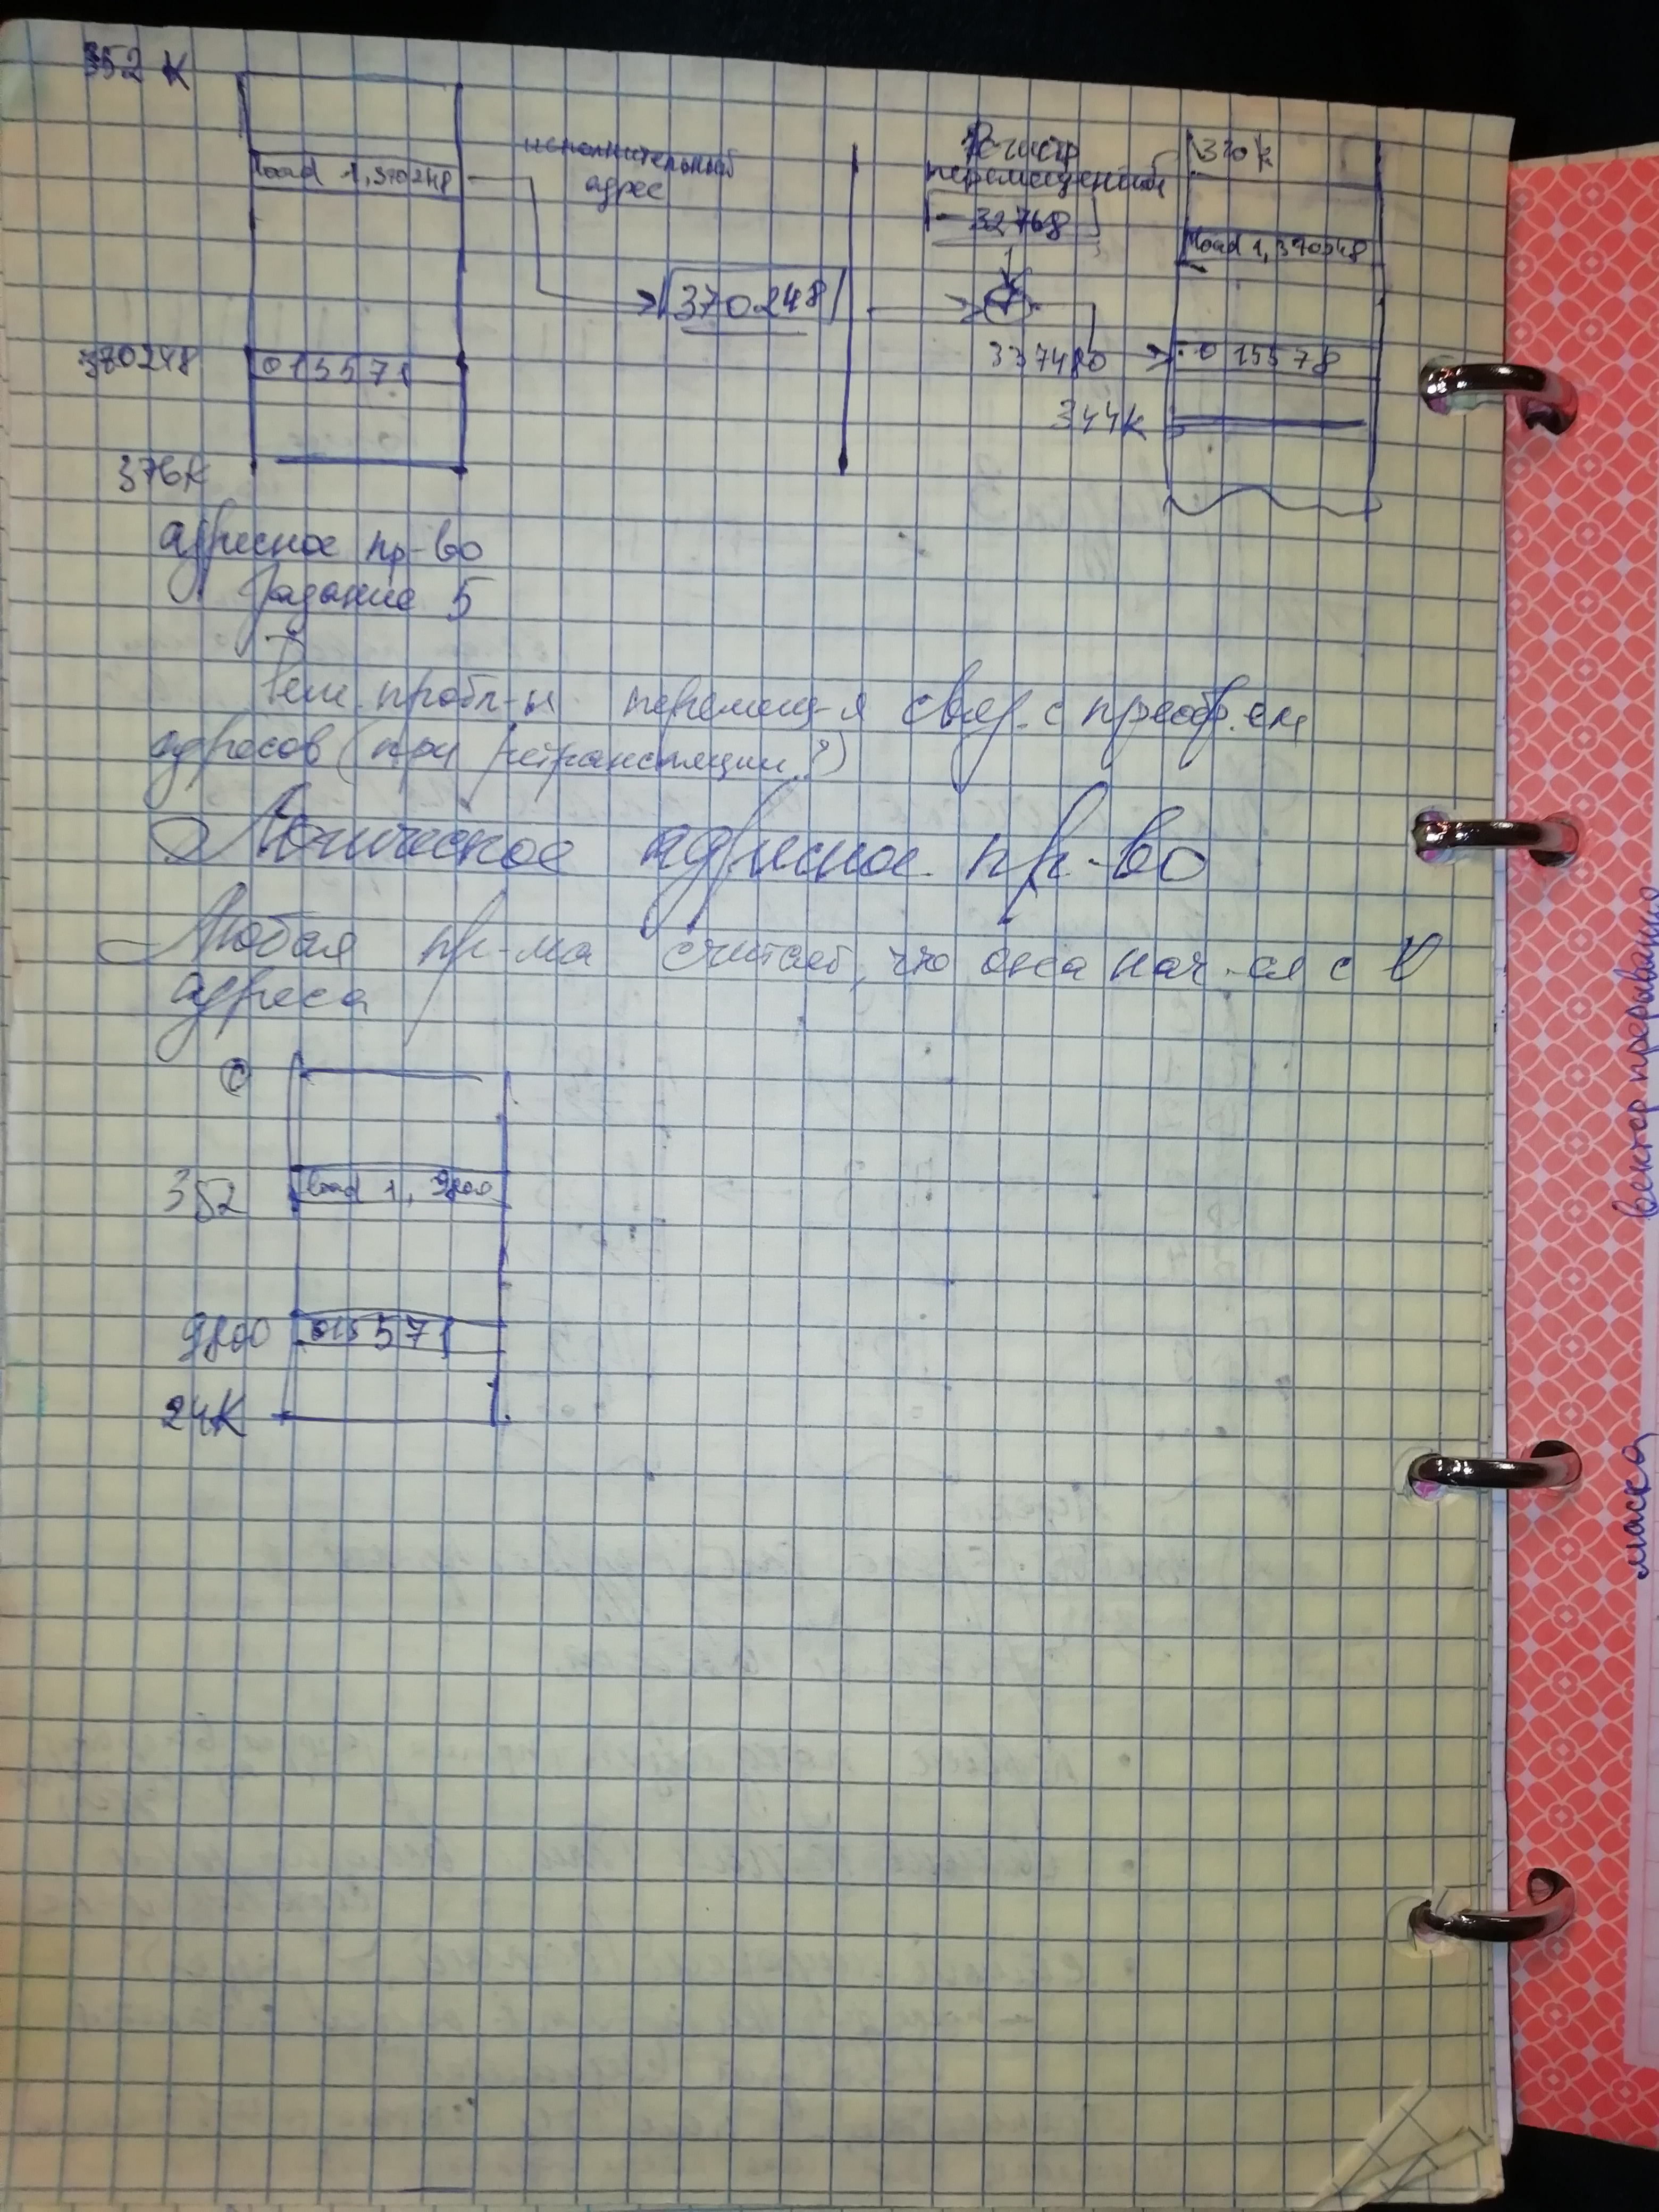 352 К
load 1,370248
исполнительный
адрес
Регистр
перемещений
- 32768
320 k
load 1,370248
370248
370248
015571
337480
015578
344k
376К
адресное пр-во
Задание 5
реш. пробл-ы перемещ-я связ. с преобр.ем
адресов (при ретрансляции?)
Логическое адресное пр-во
Любая пр-ма считает, что она нач-ся с 0
адреса
0
352
load 1, 9800
9800
015571
24К
вектор прерывания
маска